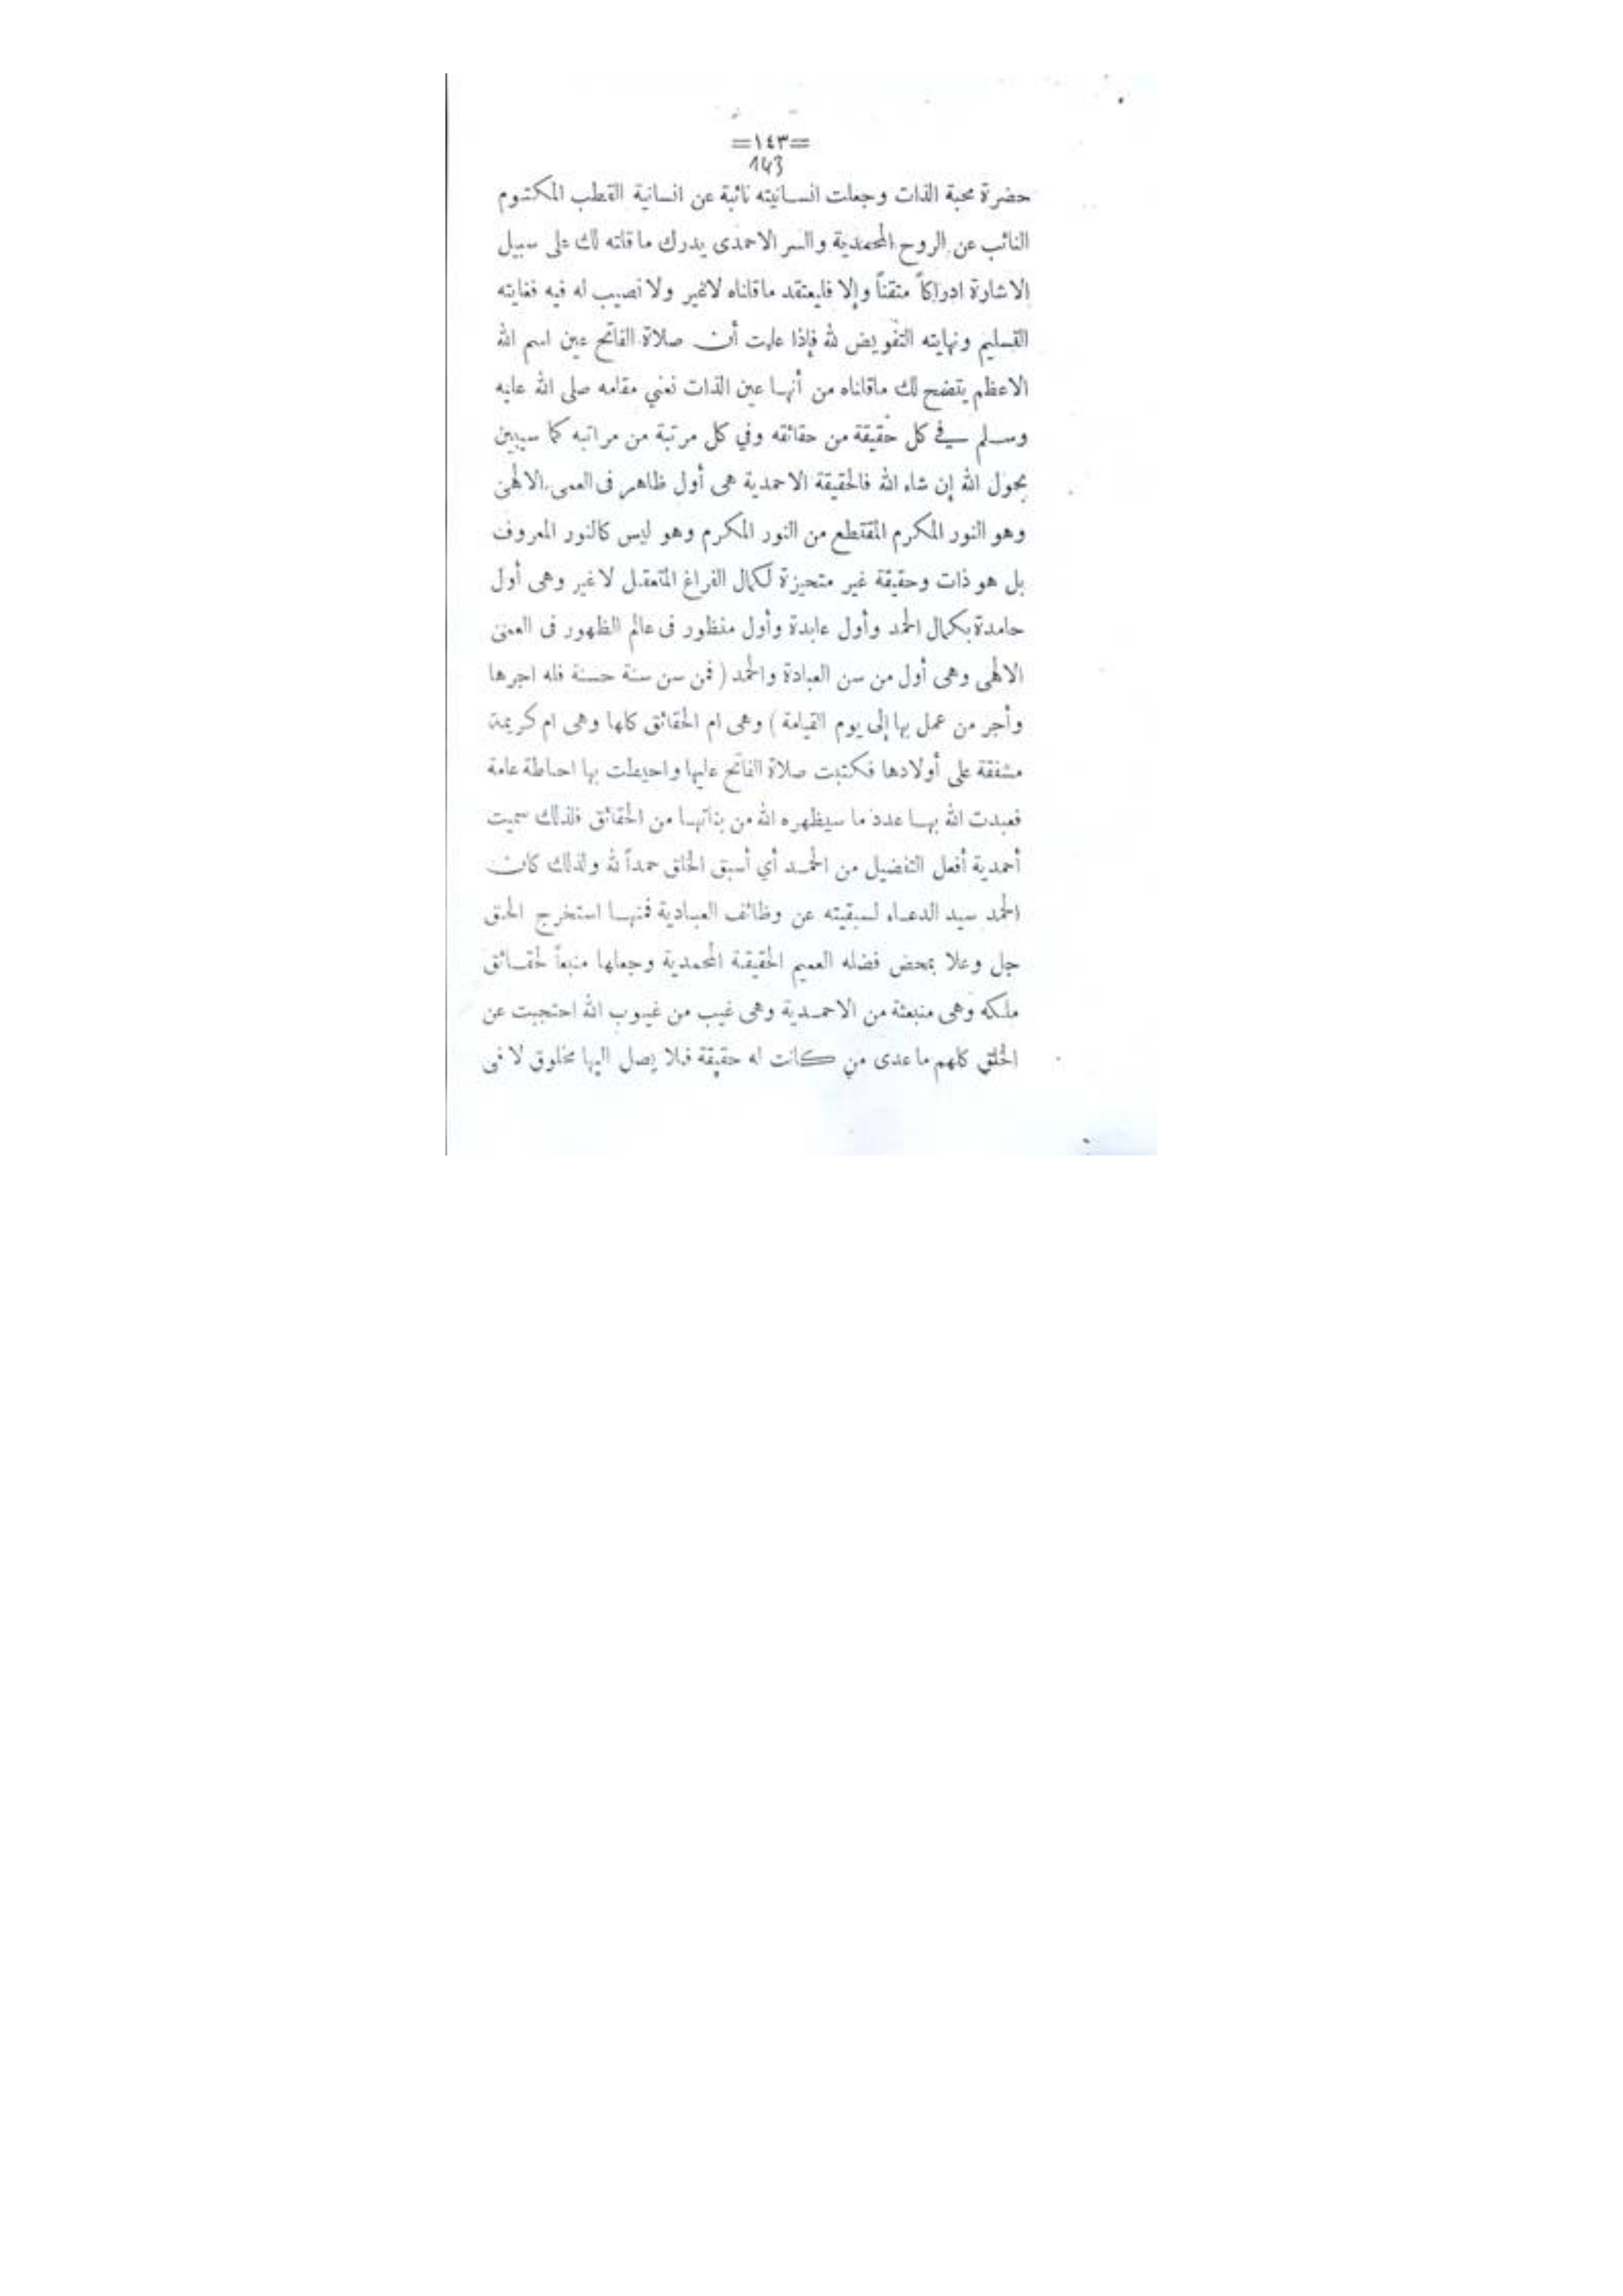 =١٤٣=
143
حضرة محبة الذات وجعلت انسانيته نائبة عن انسانية القطب المكتوم
النائب عن الروح المحمدية والسر الاحمدى يدرك ما قلته لك على سبيل
الاشارة ادراكاً متقناً وإلا فليعتقد ماقلناه لاغير ولا نصيب له فيه فغايته
التسليم ونهايته التفويض لله فإذا علمت أن صلاة الفاتح عين اسم الله
الاعظم يتضح لك ماقلناه من أنها عين الذات نعني مقامه صلى الله عليه
وسلم في كل حقيقة من حقائقه وفي كل مرتبة من مراتبه كما سيبين
بحول الله إن شاء الله فالحقيقة الاحمدية هى أول ظاهر فى العمى الالهى
وهو النور المكرم المقتطع من النور المكرم وهو ليس كالنور المعروف
بل هو ذات وحقيقة غير متحيزة لكمال الفراغ المتعقل لاغير وهى أول
حامدة بكمال الحمد وأول عابدة وأول منظور فى عالم الظهور فى العمى
الالهى وهى أول من سن العبادة والحمد ( فمن سن سنة حسنة فله اجرها
وأجر من عمل بها إلى يوم القيامة ) وهى ام الحقائق كلها وهى ام كريمة
مشفقة على أولادها فكتبت صلاة الفاتح عليها واحيطت بها احاطة عامة
فعبدت الله بها عدد ما سيظهره الله من بناتها من الحقائق فلذلك سميت
أحمدية أفعل التفضيل من الحمد أي أسبق الخلق حمداً لله ولذلك كان
الحمد سيد الدعاء لسبقيته عن وظائف العبادية فمنها استخرج الحق
جل وعلا بمحض فضله العميم الحقيقة المحمدية وجعلها منبعاً لحقائق
ملكه وهى منبعثة من الاحمدية وهى غيب من غيوب الله احتجبت عن
الخلق كلهم ما عدى من كانت له حقيقة فلا يصل اليها مخلوق لا فى